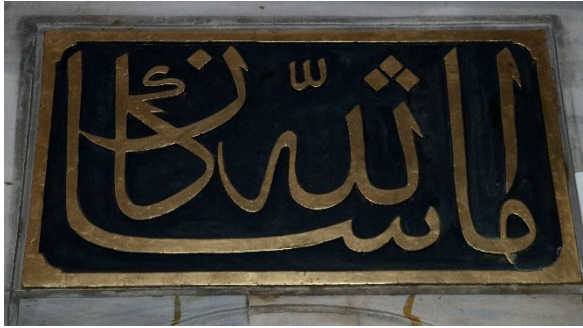 ما شاالله كان